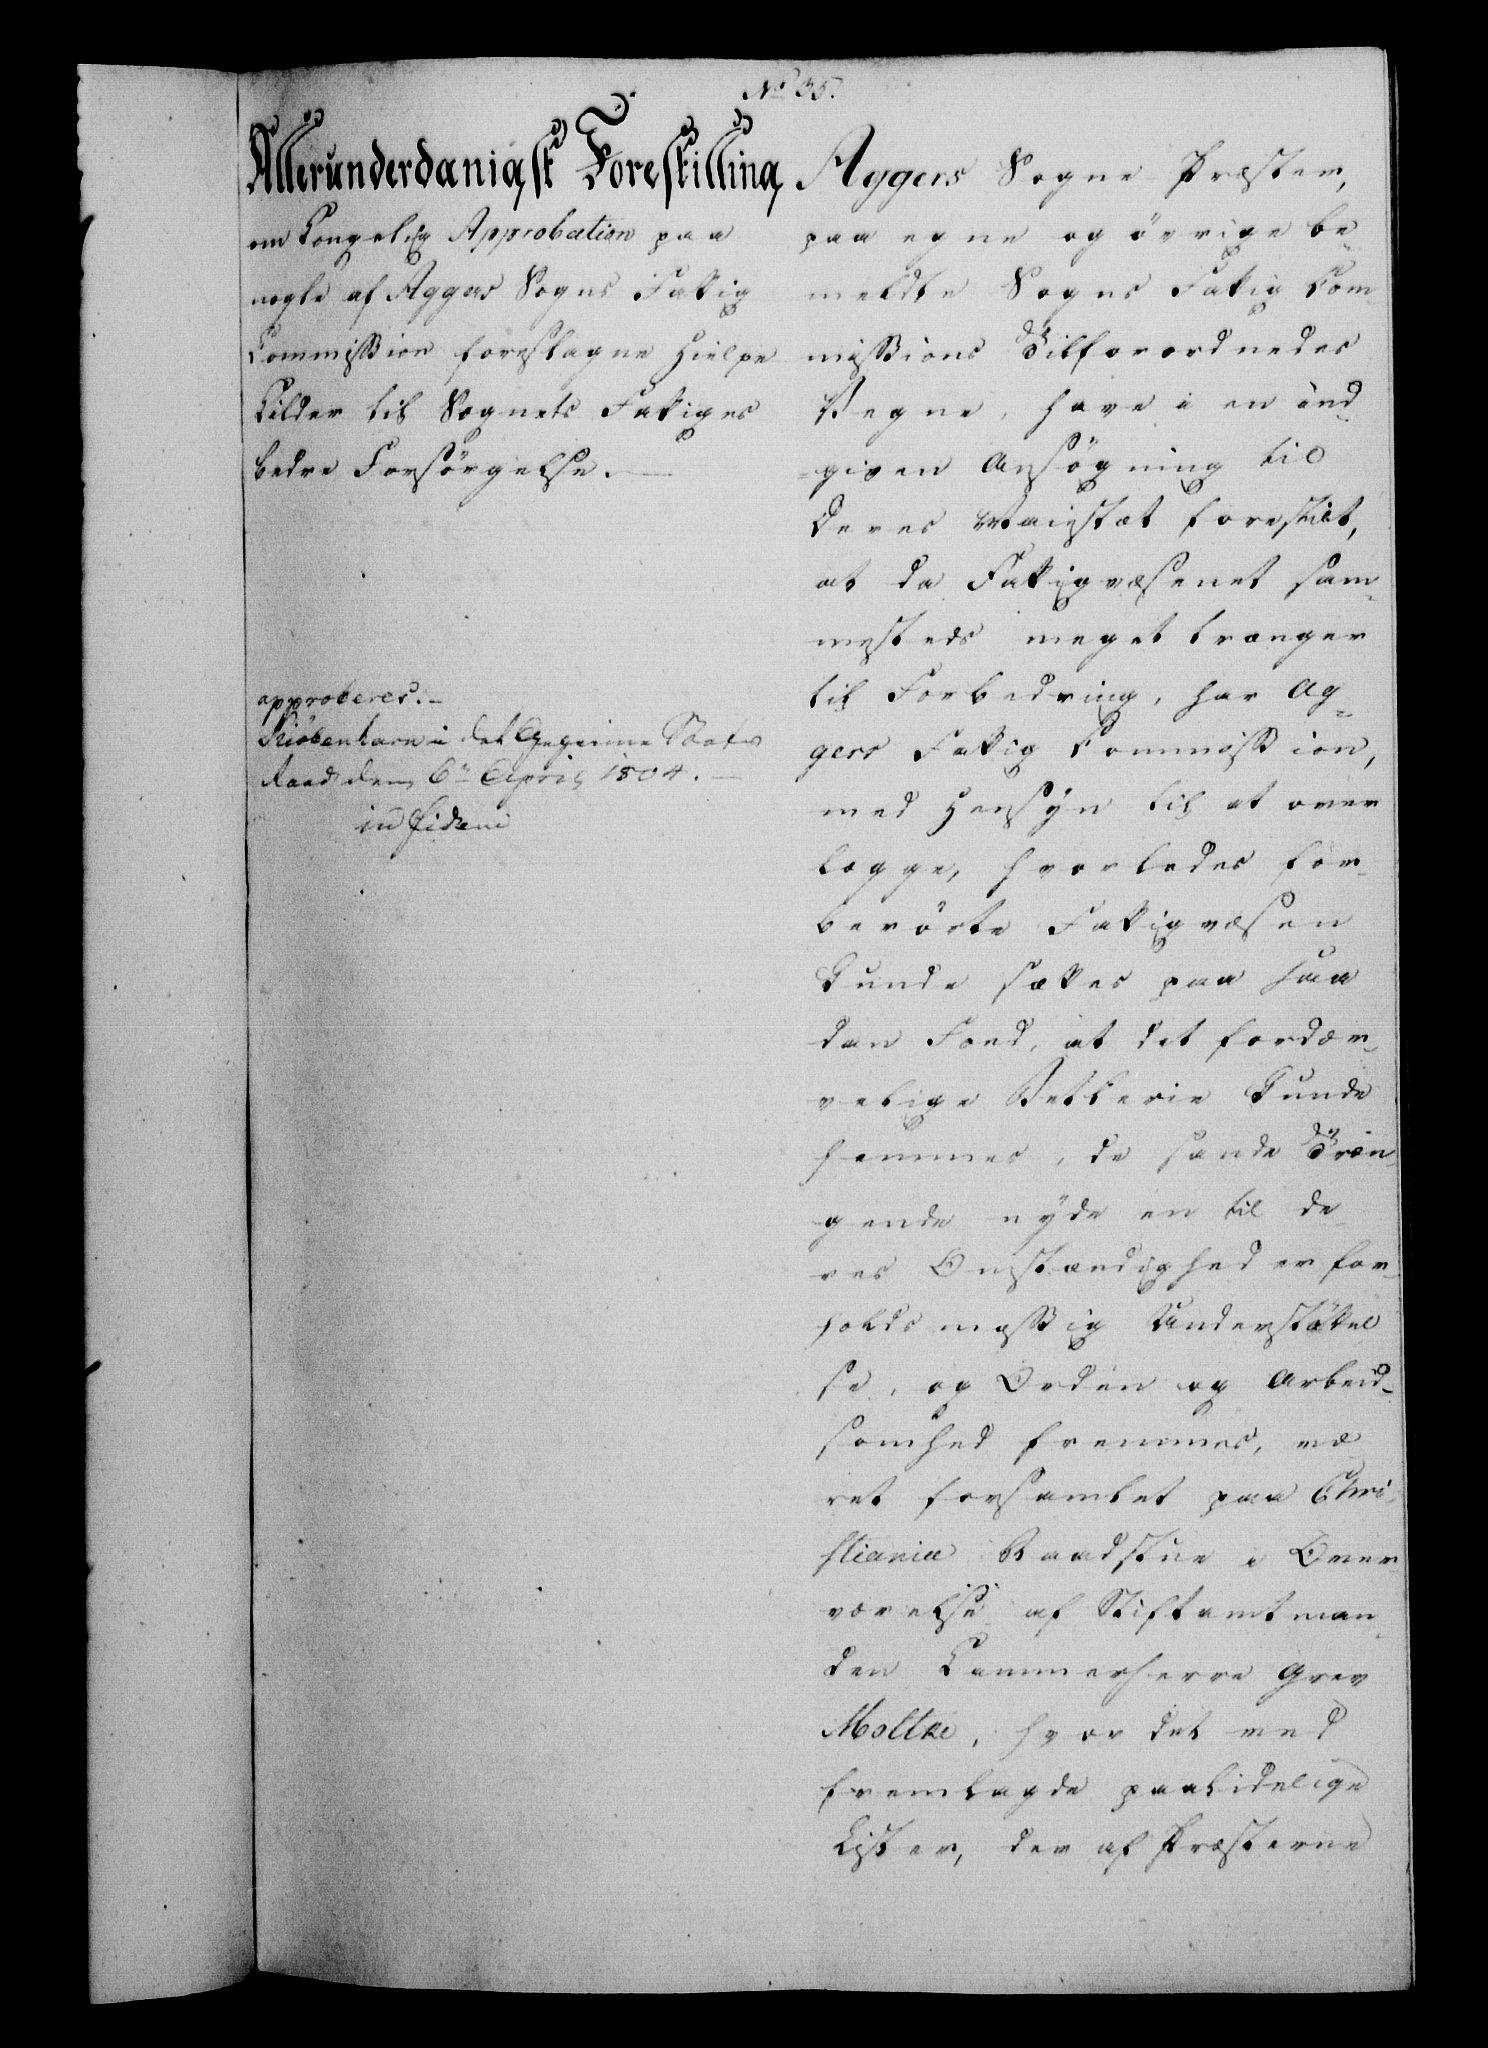 No 35.
Allerunderdanigst Forestilling
om Kongelig Approbation paa
nogle af Aggers Sogns Fattig
Commission foreslagne Hielpe
Kilder til Sognets Fattiges
bedre Forsörgelse.
approberes.
Kiöbenhavn i det Geheime Stats
Raad den 6te April 1804.
in fidem
Aggers Sogne Præster,
paa egne og övrige be
meldte Sogns Fattig Com
missions Tilforordnedes
Vegne, have i en ind
given Ansögning til
Deres Maiestæt forestilt,
at da Fattigvæsenet sam
mesteds meget trænger
til Forbedring, har Ag
gers Fattig Commission,
med Hensyn til at over
lægge, hvorledes for
berörte Fattigvæsen
kunde sættes paa saa
dan Fond, at det fordær
velige Betlerie kunde
hemmes, de sande Træn
gende nÿde en til de
res Omstændigheder for
holdsmæssig Understöttel
se, og Orden og Arbeid
somhed fremmes, væ
ret forsamlet paa Chri
stiania Raadstue i Over
værelse af Stiftamtman
den Kammerherre Grev
Moltke, hvor det med
fremlagde paalidelige
Lister, der af Præsterne